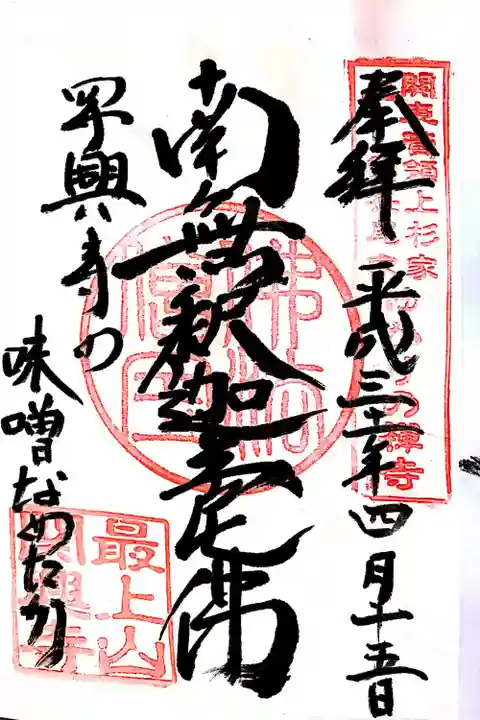 奉拜 平成三十一年四月十五日
關東管領上杉家
の禅寺
南無釈迦牟尼佛
関興寺の
味噌なめたか
最上山
關興寺